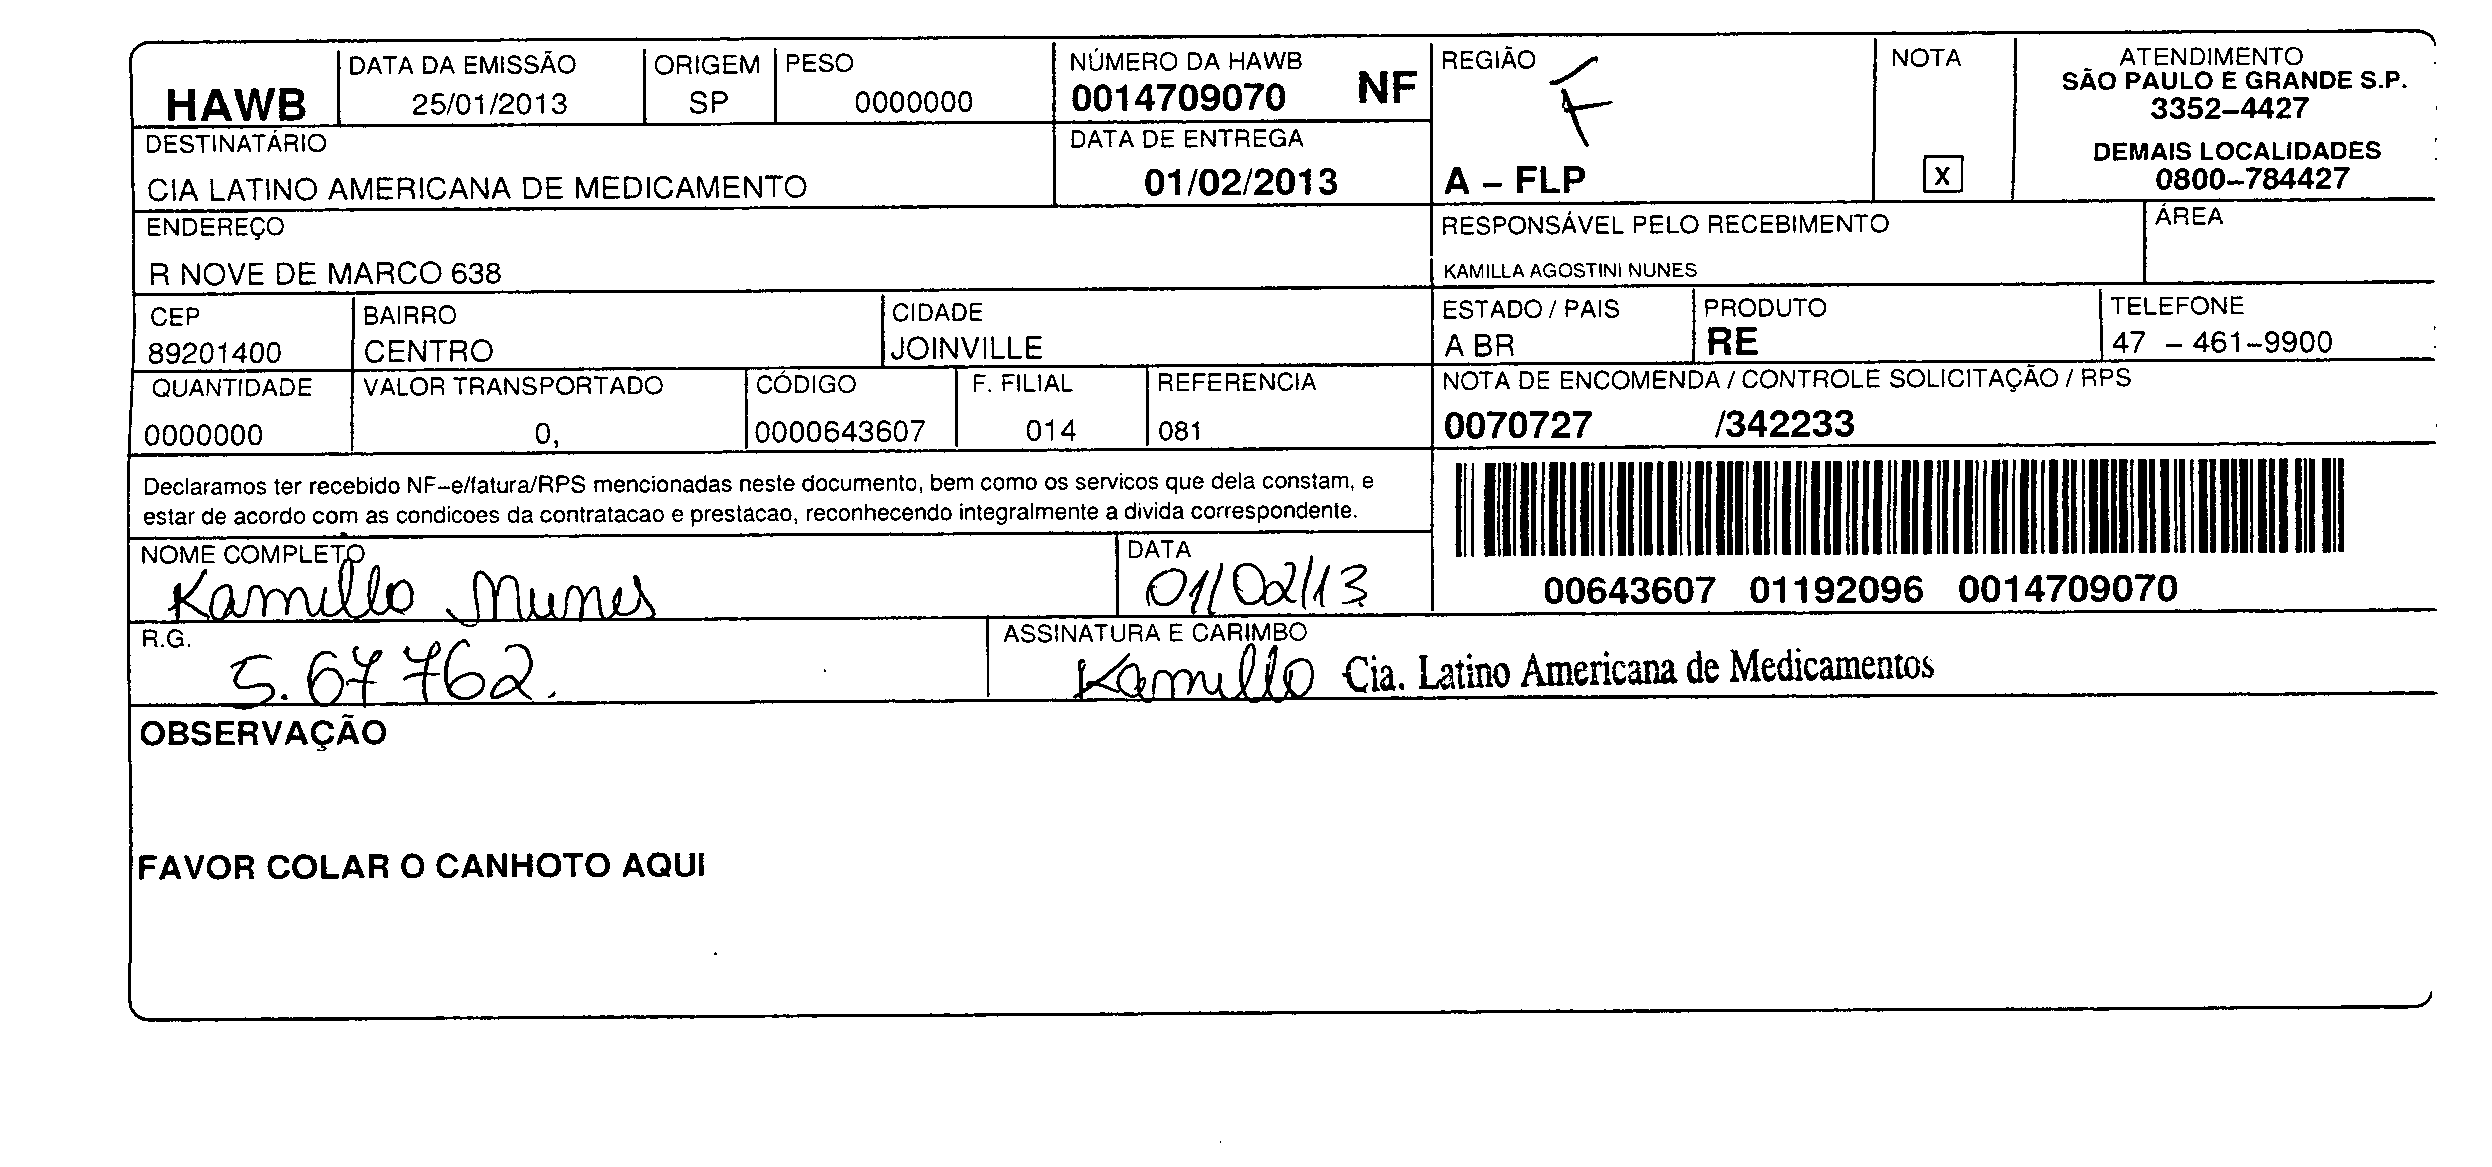 HAWB
DATA DA EMISSÃO
25/01/2013
ORIGEM
SP
PESO
0000000
NÚMERO DA HAWB
0014709070 NF
REGIÃO
A – FLP
NOTA
X
ATENDIMENTO
SÃO PAULO E GRANDE S.P.
3352–4427
DEMAIS LOCALIDADES
0800–784427
DESTINATÁRIO
CIA LATINO AMERICANA DE MEDICAMENTO
DATA DE ENTREGA
01/02/2013
ENDEREÇO
R NOVE DE MARCO 638
RESPONSÁVEL PELO RECEBIMENTO
KAMILLA AGOSTINI NUNES
ÁREA
CEP
89201400
BAIRRO
CENTRO
CIDADE
JOINVILLE
ESTADO / PAIS
A BR
PRODUTO
RE
TELEFONE
47 – 461–9900
QUANTIDADE
0000000
VALOR TRANSPORTADO
0,
CÓDIGO
0000643607
F. FILIAL
014
REFERENCIA
081
NOTA DE ENCOMENDA / CONTROLE SOLICITAÇÃO / RPS
0070727 /342233
Declaramos ter recebido NF–e/fatura/RPS mencionadas neste documento, bem como os servicos que dela constam, e
estar de acordo com as condicoes da contratacao e prestacao, reconhecendo integralmente a divida correspondente.
00643607 01192096 0014709070
NOME COMPLETO
Kamilla Nunes
DATA
01/02/13
R.G.
5.67 762.
ASSINATURA E CARIMBO
Kamilla Cia. Latino Americana de Medicamentos
OBSERVAÇÃO
FAVOR COLAR O CANHOTO AQUI